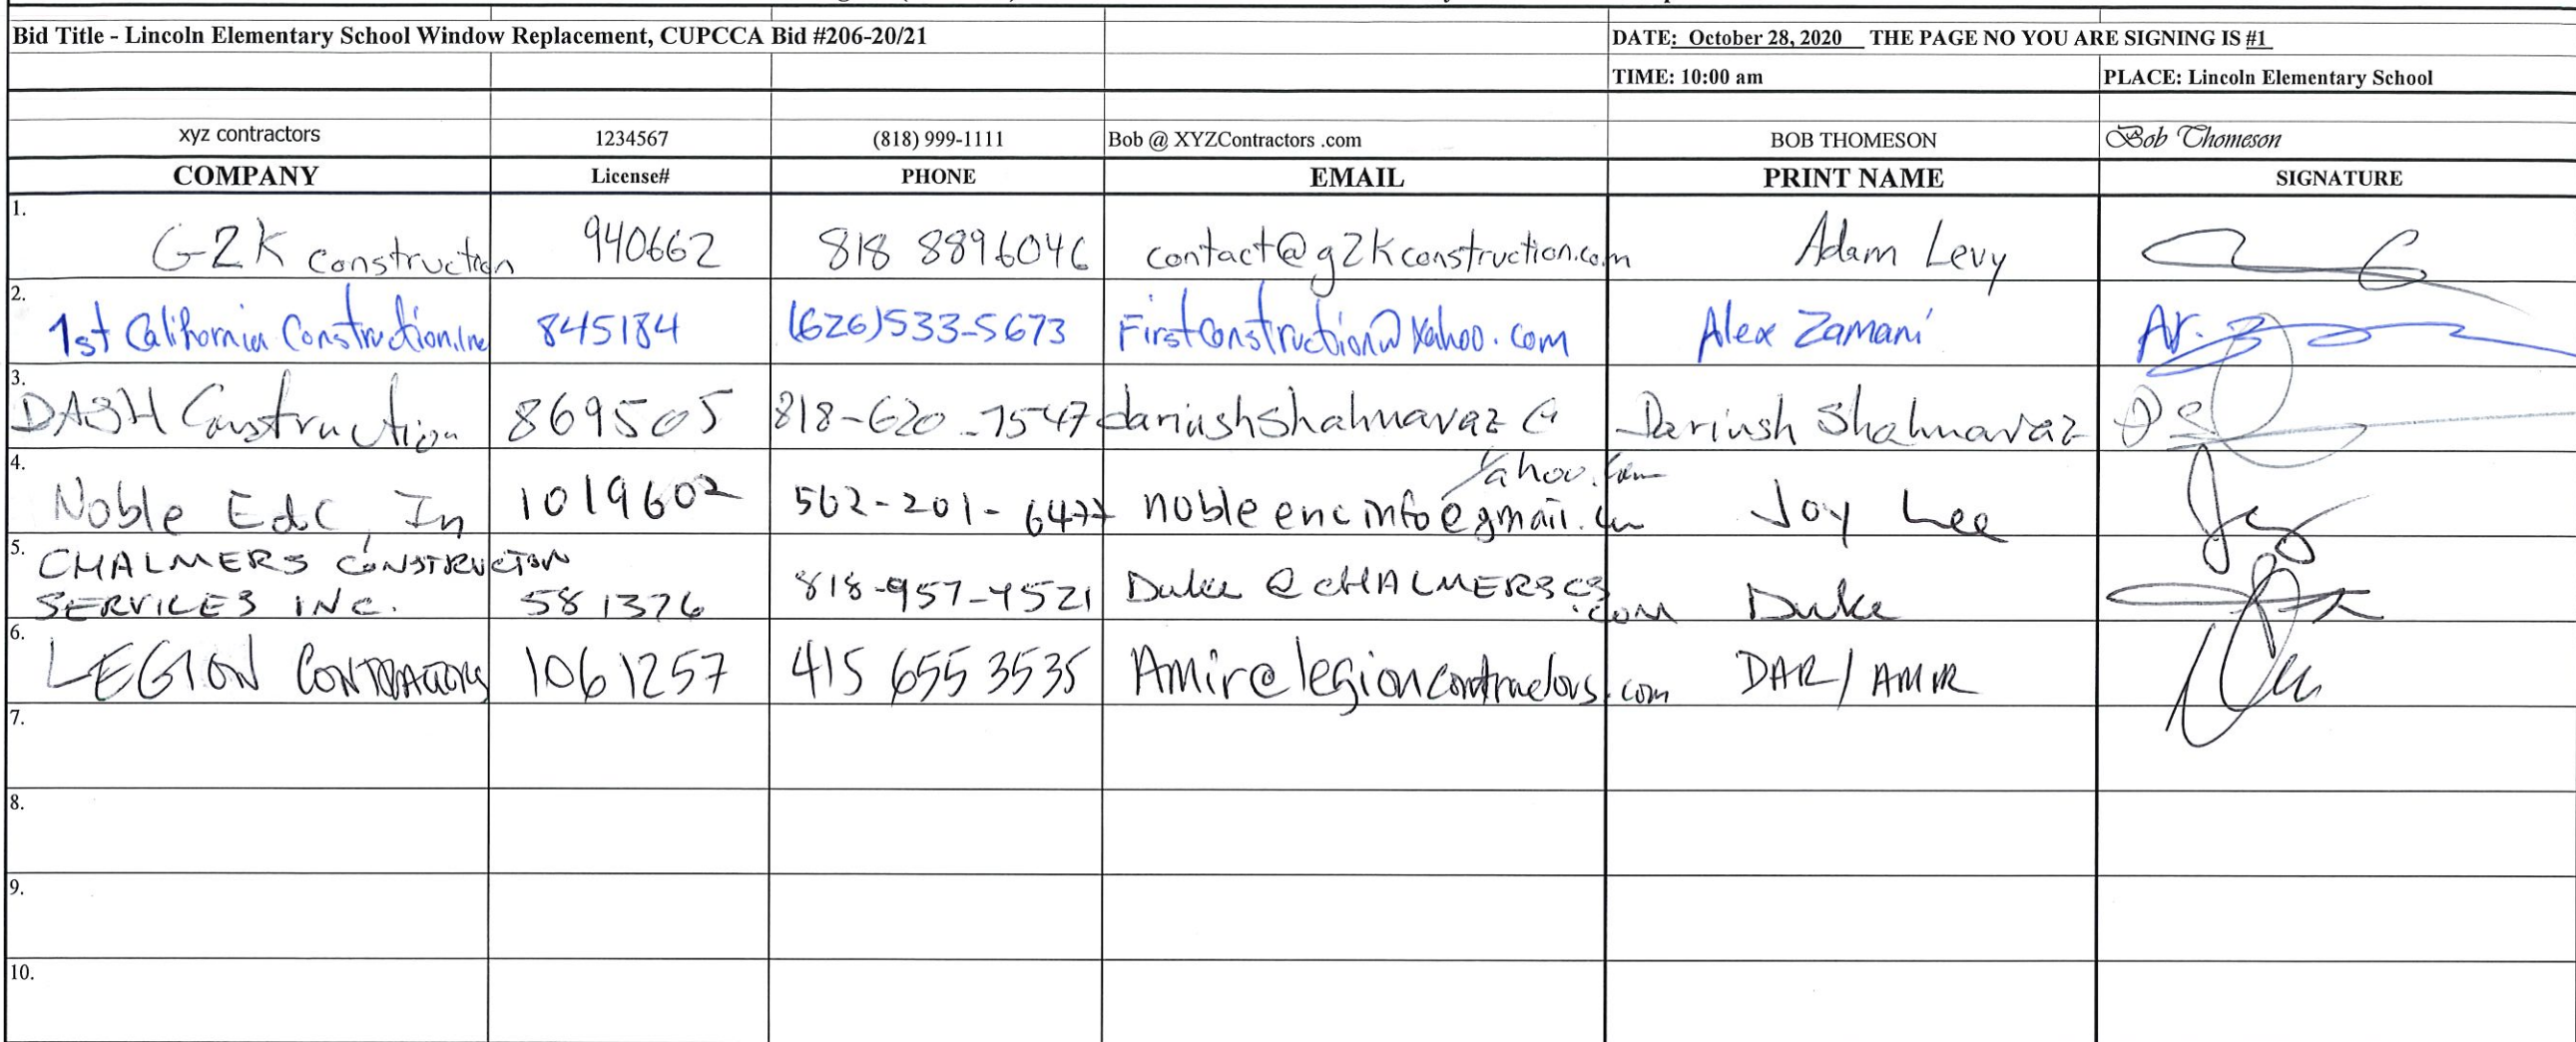 Bid Title - Lincoln Elementary School Window Replacement, CUPCCA Bid #206-20/21 DATE: October 28, 2020 THE PAGE NO YOU ARE SIGNING IS #1
TIME: 10:00 am PLACE: Lincoln Elementary School
xyz contractors 1234567 (818) 999-1111 Bob @ XYZContractors .com BOB THOMESON Bob Thomeson
COMPANY License# PHONE EMAIL PRINT NAME SIGNATURE
1. G2K Construction 940662 818 8896046 contact@g2kconstruction.com Adam Levy
2. 1st California Construction, Inc 845184 (626)533-5673 Firstconstruction@Yahoo.com Alex Zamani
3. DASH Construction 869505 818-620-7547 dariushshahnavaz @ Dariush Shahnavaz
Yahoo.com
4. Noble EdC, In 1019602 562-201-6477 nobleencinfo@gmail. Joy Lee
5. CHALMERS CONSTRUCTON
SERVICES INC. 581376 818-957-4521 Duke @ CHALMERSCS Duke
.com
6. LEGION CONTRACTORS 1061257 415 655 3535 Amir@legioncontractors.com DAR/AMIR
7.
8.
9.
10.